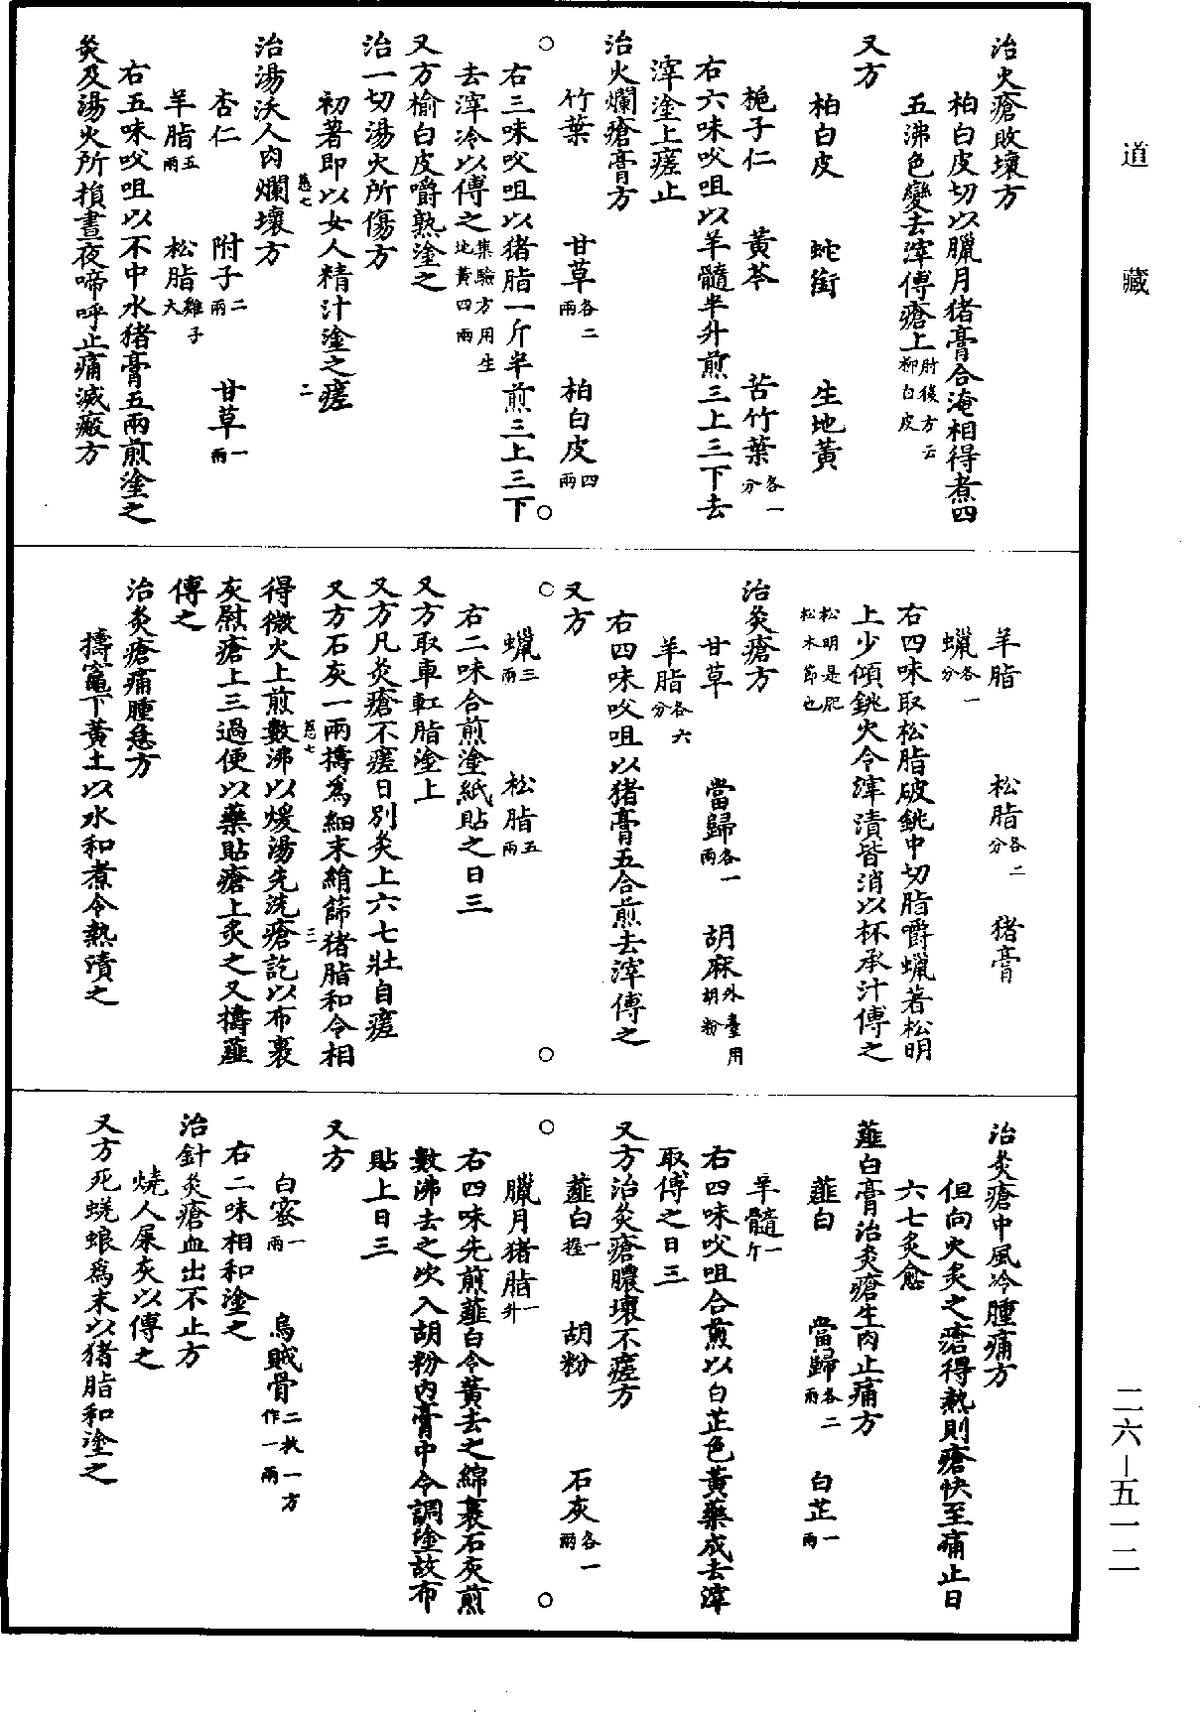 道藏
治火瘡敗壞方
柏白皮切以臘月猪膏合淹相得煮四
五沸色變去滓傅瘡上肘後方云柳白皮
又方
柏白皮 蛇銜 生地黃
梔子仁 黃芩 苦竹葉各一分
右六味㕮咀以羊髓半升煎三上三下去
滓塗上瘥止
治火爛瘡膏方
竹葉 甘草各二兩 柏白皮四兩
右三味㕮咀以猪脂一斤半煎三上三下
去滓冷以傅之集驗方用生地黃四兩
又方榆白皮嚼熟塗之
治一切湯火所傷方
初著即以女人精汁塗之瘥
慈七 二
治湯沃人肉爛壞方
杏仁 附子二兩 甘草一兩
羊脂五兩 松脂雞子大
右五味㕮咀以不中水猪膏五兩煎塗之
灸及湯火所損晝夜啼呼止痛滅瘢方
羊脂 松脂各二分 猪膏
蠟各一分
右四味取松脂破銚中切脂嚼蠟著松明
上少傾銚火令滓漬皆消以杯承汁傅之
松明是肥松木節也
治灸瘡方
甘草 當歸各一兩 胡麻外臺用胡粉
羊脂各六分
右四味㕮咀以猪膏五合煎去滓傅之
又方
蠟三兩 松脂五兩
右二味合煎塗紙貼之日三
又方取車缸脂塗上
又方凡灸瘡不瘥日別灸上六七壯自瘥
又方石灰一兩擣為細末絹篩猪脂和令相
慈七 三
得微火上煎數沸以煖湯先洗瘡訖以布裹
灰慰瘡上三過便以藥貼瘡上炙之又擣薤
傅之
治灸瘡痛腫急方
擣竈下黃土以水和煮令熱漬之
治灸瘡中風冷腫痛方
但向火炙之瘡得熱則瘡快至痛止日
六七炙愈
薤白膏治灸瘡生肉止痛方
薤白 當歸各二兩 白芷一兩
羊髓一斤
右四味㕮咀合煎以白芷色黃藥成去滓
取傅之日三
又方治灸瘡膿壞不瘥方
薤白一握 胡粉 石灰各一兩
臘月猪脂一升
右四味先煎薤白令黃去之綿裹石灰煎
數沸去之次入胡粉內膏中令調塗故布
貼上日三
又方
白蜜一兩 烏賊骨二枚一方作一兩
右二味相和塗之
治針灸瘡血出不止方
燒人屎灰以傅之
又方死蜣蜋為末以猪脂和塗之
二六—五一二